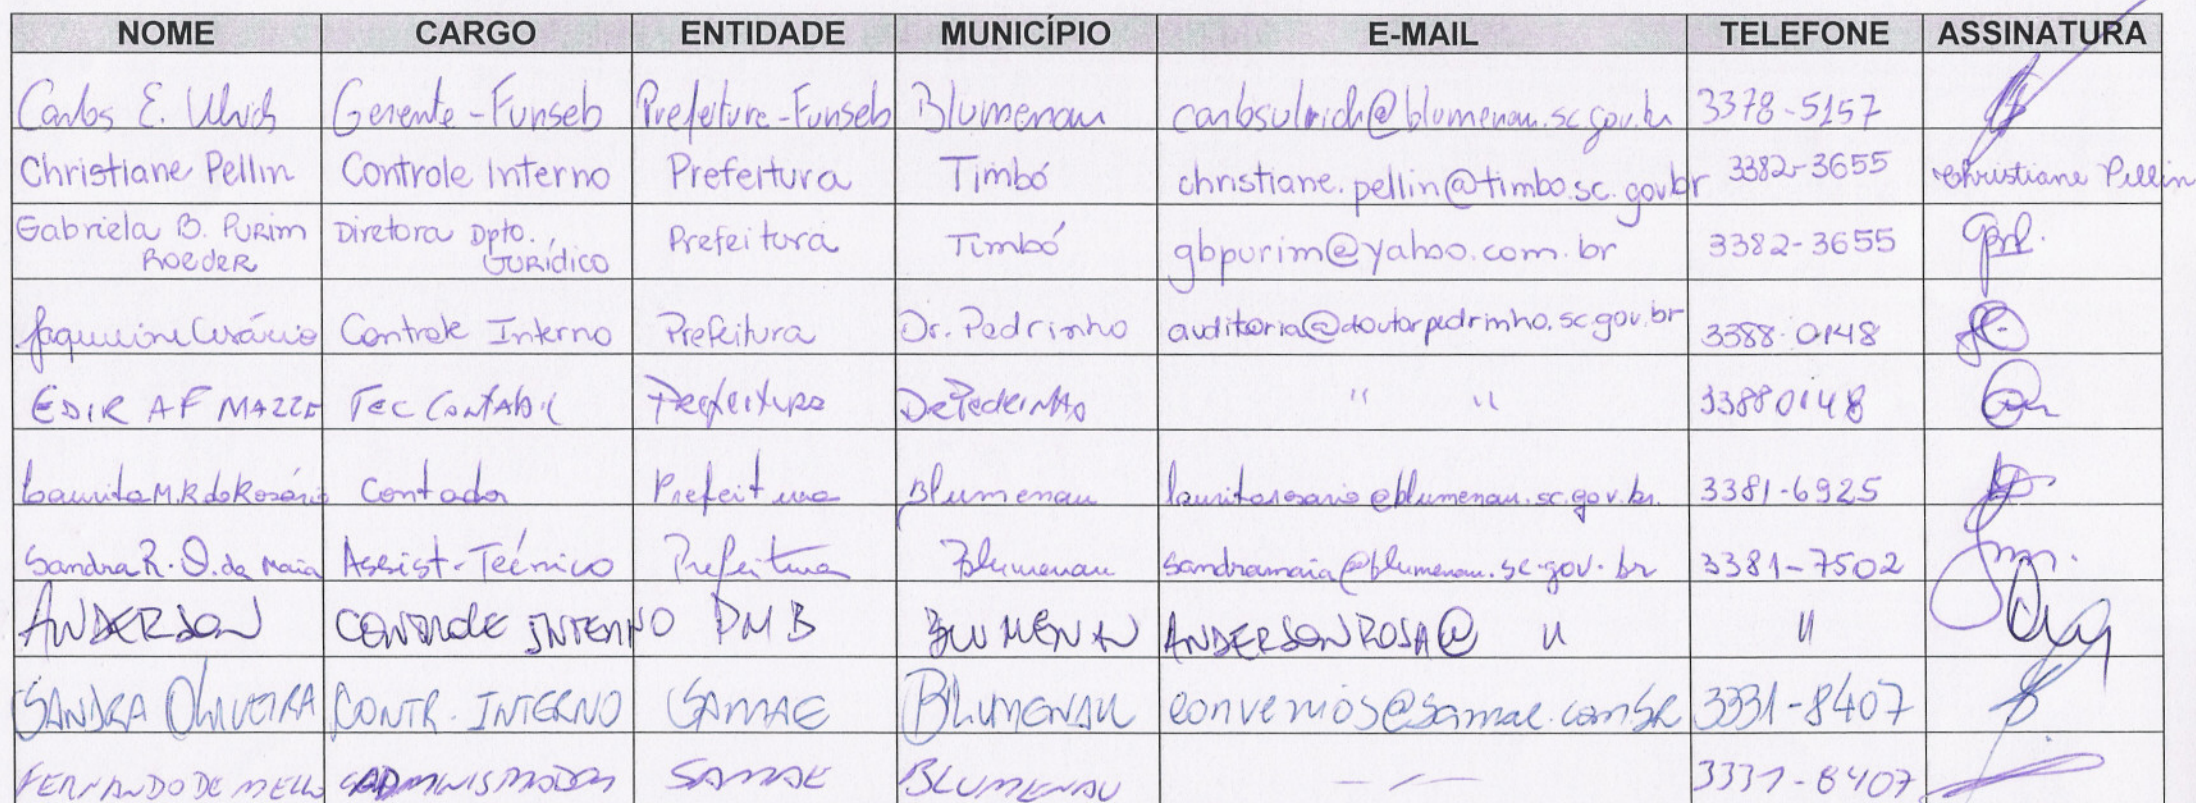 NOME CARGO ENTIDADE MUNICÍPIO E-MAIL TELEFONE ASSINATURA
Carlos E. Ulrich Gerente - Funseb Prefeitura - Funseb Blumenau carlosulrich@blumenau.sc.gov.br 3378-5157
Christiane Pellin Controle Interno Prefeitura Timbó christiane.pellin@timbo.sc.gov.br 3382-3655 Christiane Pellin
Gabriela B. Purim Diretora Dpto. Prefeitura Timbó gbpurim@yahoo.com.br 3382-3655
Roeder Jurídico
Jaqueline Cesário Controle Interno Prefeitura Dr. Pedrinho auditoria@doutorpedrinho.sc.gov.br 3388-0148
EDIR AF MAZZE Tec Contabil Prefeitura Dr Pedrinho " " 33880148
Laurita M.R do Rosário Contador Prefeitura Blumenau lauritarosario@blumenau.sc.gov.br. 3381-6925
Sandra R. O. da Maia Assist. Técnico Prefeitura Blumenau sandramaia@blumenau.sc.gov.br 3381-7502
ANDERSON CONTROLE INTERNO PMB BLUMENAU ANDERSONROSA@ " "
SANDRA OLIVEIRA CONTR. INTERNO SAMAE BLUMENAU convenios@samae.com.br 3331-8407
FERNANDO DE MELLO ADMINISTRADOR SAMAE BLUMENAU 3331-8407